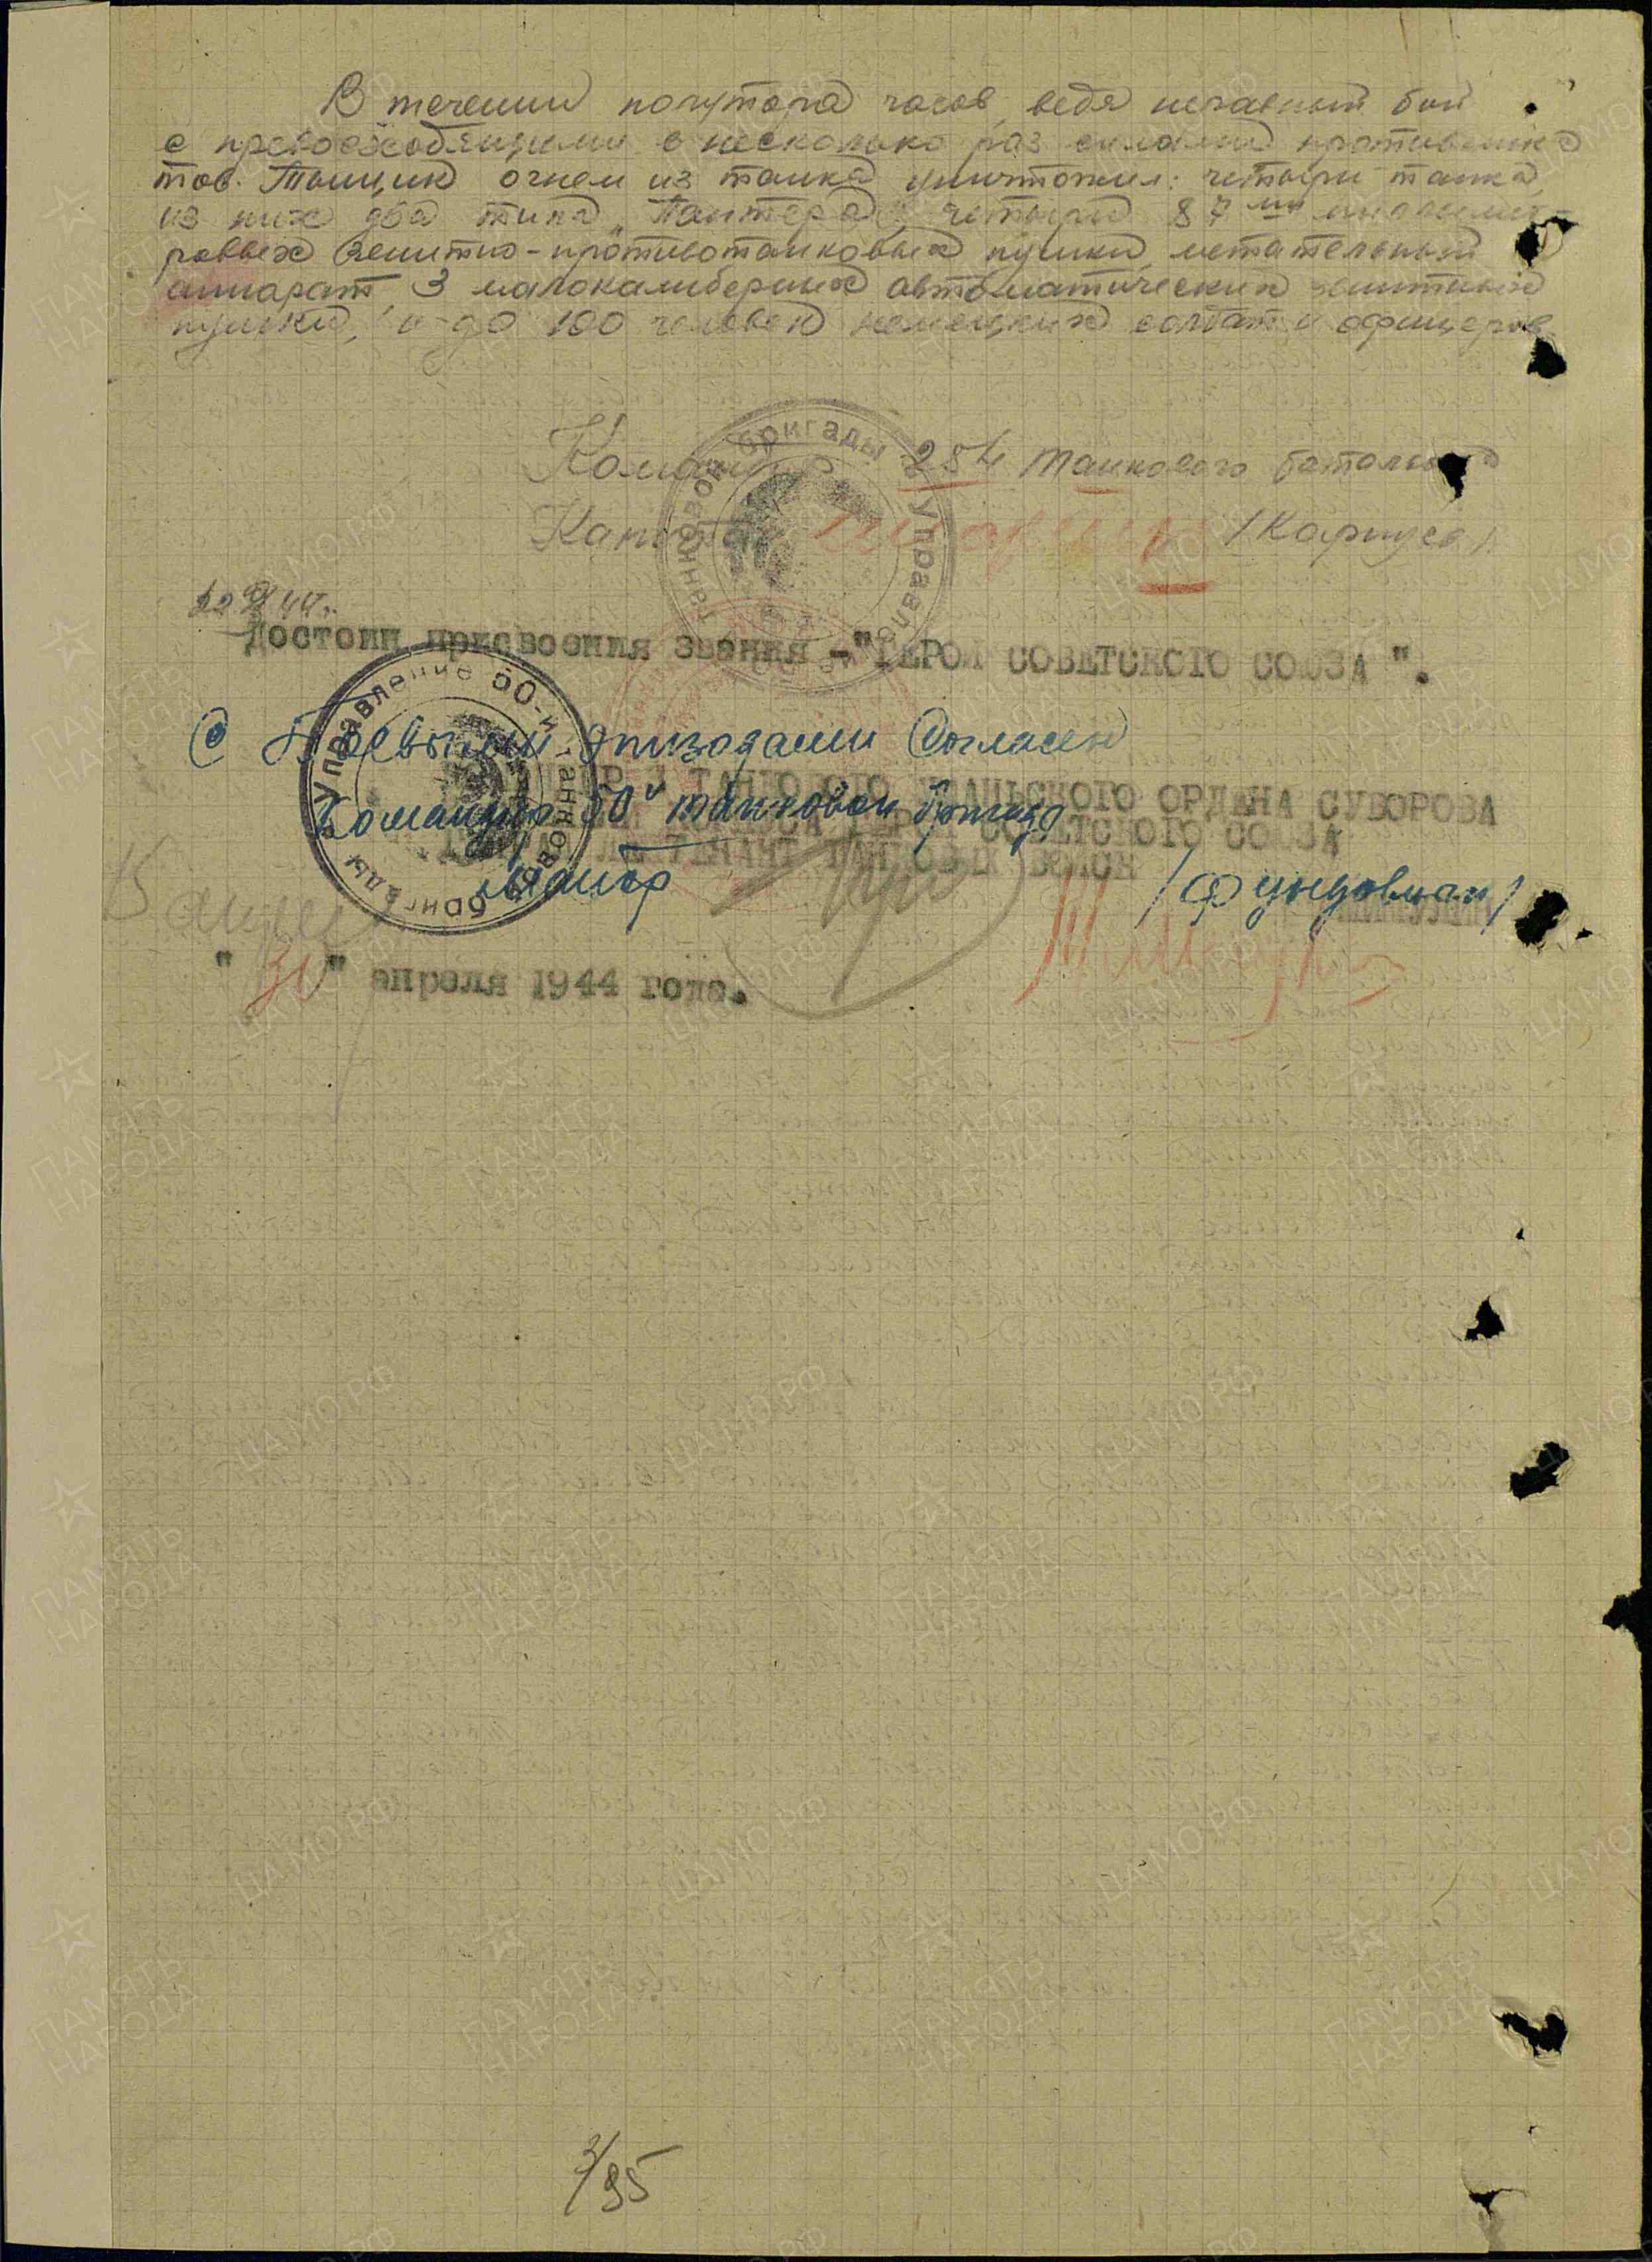 В течении полутора часов, ведя неравный бой
с превосходящими в несколько раз силами противника
тов. Танцик огнем из танка уничтожил: четыри танка,
из них два типа "Пантера", четыри 87 мм миллимет-
роввых зенитно-противотанковых пушки, метательный
аппарат, 3 малокалиберных автоматических зенитных
пушки, и до 100 человек немецких солдат и офицеров.
Командир 254 танкового батальона
Капитан /Карпуса/
Достоин присвоения звания - "ГЕРОЙ СОВЕТСКОГО СОЮЗА".
С Боевыми эпизодами Согласен
ТАНКОВОГО УМАНЬСКОГО ОРДЕНА СУВОРОВА
Командир 50й танковой бригады
КОРПУСА ГЕРОЙ СОВЕТСКОГО СОЮЗА
ЛЕЙТЕНАНТ ТАНКОВЫХ ВОЙСК
Майор
" " апреля 1944 года.
Управление 50-й танковой бригады
Управление танковой бригады
3/95
ПАМЯТЬ НАРОДА
ЦАМО.РФ